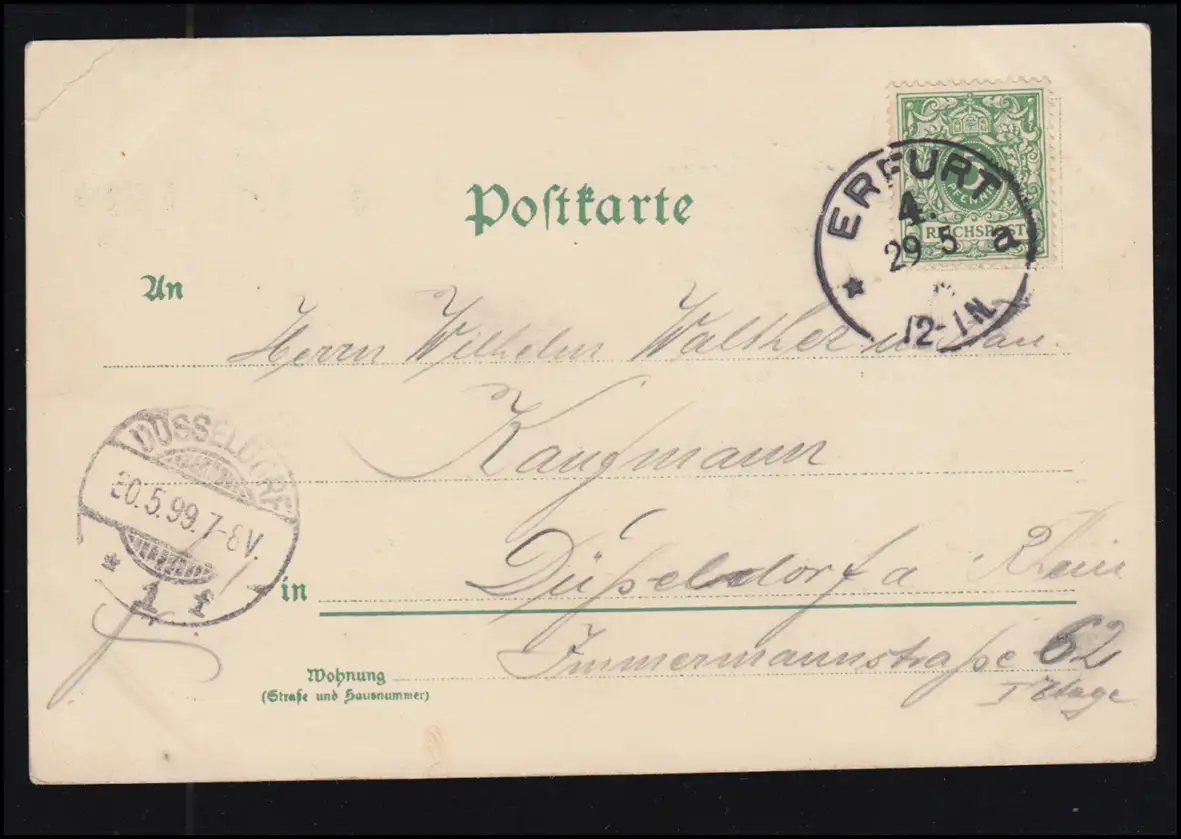 Postkarte
5
PFENNIG
REICHSPOST
ERFURT
4.
29 5 a
* 12-1N.
An
Herrn Wilhelm Walther u
Kaufmann
DÜSSELDORF
30.5.99.7-8V.
* 1 f
in Düßeldorf a Rhein
Immermannstraße 62
I Etage
Wohnung
(Straße und Hausnummer)